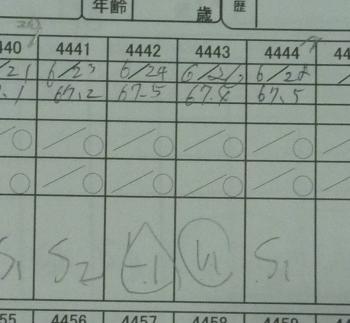 年齢 歳 歴
440 4441 4442 4443 4444 44
/21 6/23 6/24 6/28
.1 67.2 67.5 67.5
S1 S2 S1
55 4456 4457 4458 4459